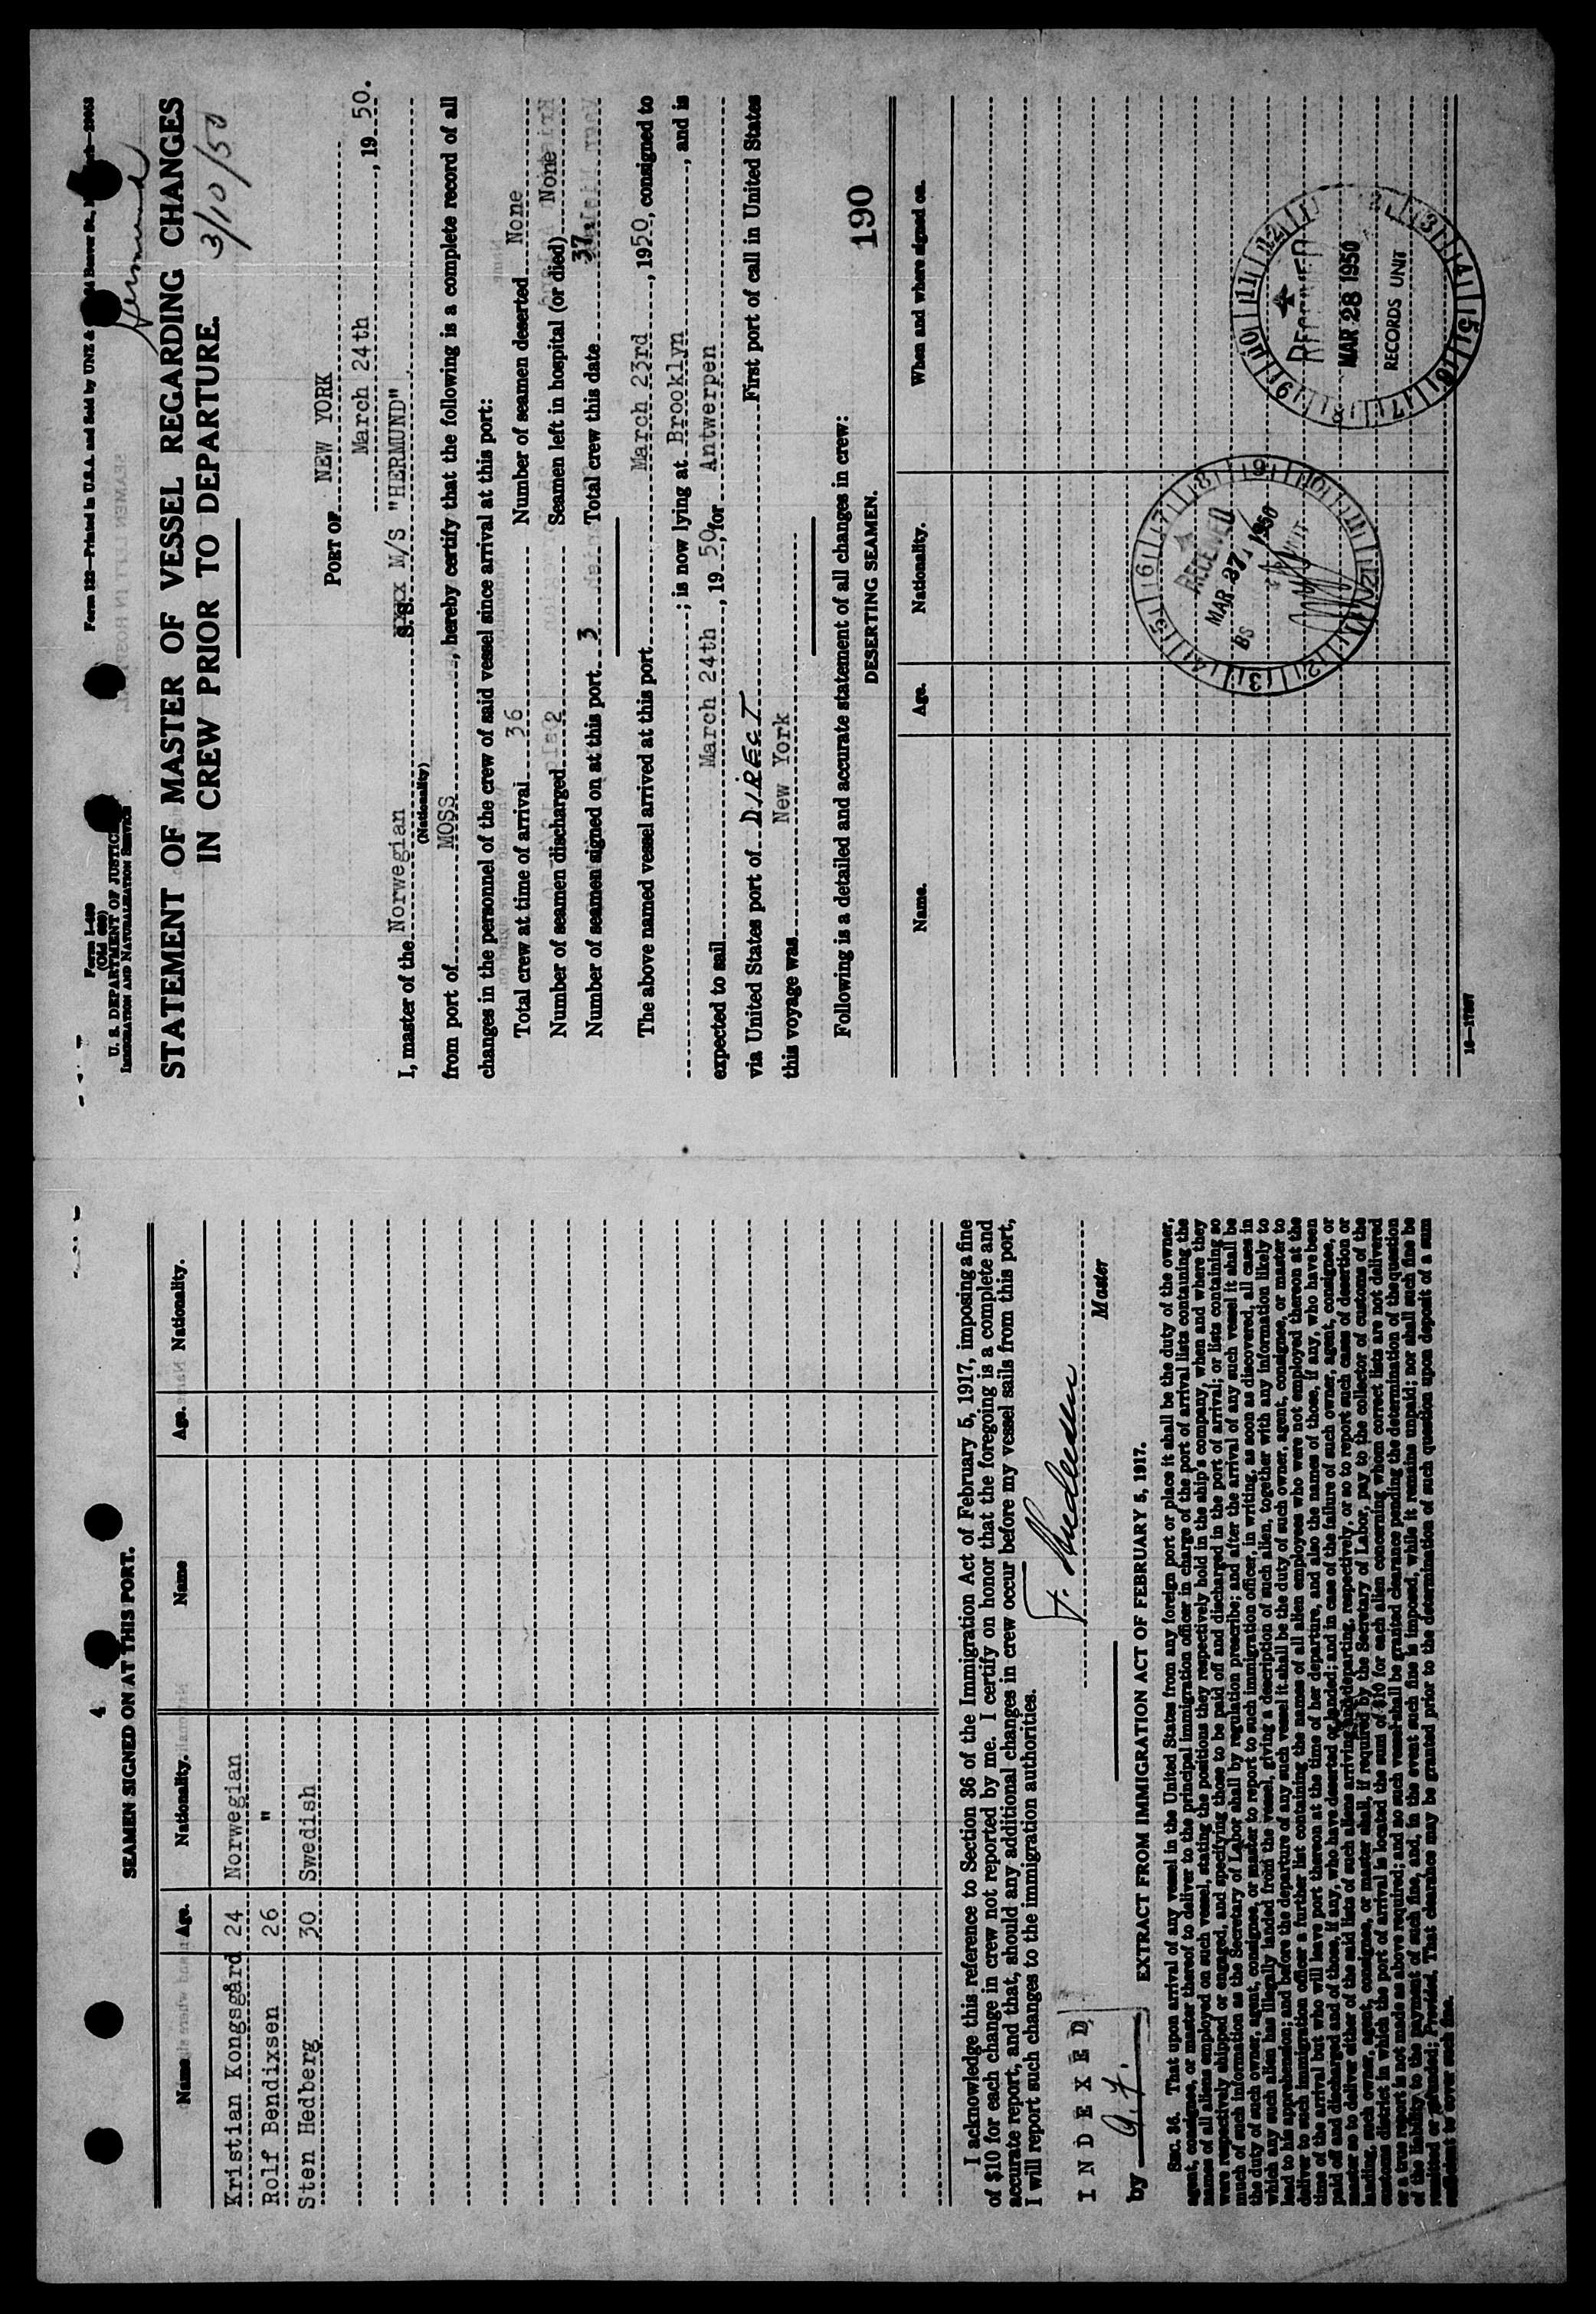 Form I-489
(Old 689)
U. S. DEPARTMENT OF JUSTICE
IMMIGRATION AND NATURALIZATION SERVICE
Form 122—Printed in U.S.A. and Sold by UNZ &
Hermund
STATEMENT OF MASTER OF VESSEL REGARDING CHANGES
IN CREW PRIOR TO DEPARTURE.
3/10/50
PORT OF NEW YORK
March 24th, 1950.
I, master of the Norwegian S.S. M/S "HERMUND"
(Nationality)
from port of MOSS, hereby certify that the following is a complete record of all
changes in the personnel of the crew of said vessel since arrival at this port:
Total crew at time of arrival 36 Number of seamen deserted None
Number of seamen discharged 2 Seamen left in hospital (or died) None
Number of seamen signed on at this port 3 Total crew this date 37
The above named vessel arrived at this port March 23rd, 1950, consigned to
; is now lying at Brooklyn, and is
expected to sail March 24th, 1950, for Antwerpen
via United States port of DIRECT First port of call in United States
this voyage was New York
Following is a detailed and accurate statement of all changes in crew:
190
DESERTING SEAMEN.
Name. Age. Nationality. When and where signed on.
RECEIVED
MAR 27 1950
BS
RECEIVED
MAR 28 1950
RECORDS UNIT
16—17297
4
SEAMEN SIGNED ON AT THIS PORT.
Name Age. Nationality. Name Age. Nationality.
Kristian Kongsgård 24 Norwegian
Rolf Bendixsen 26 "
Sten Hedberg 30 Swedish
I acknowledge this reference to Section 36 of the Immigration Act of February 5, 1917, imposing a fine
of $10 for each change in crew not reported by me. I certify on honor that the foregoing is a complete and
accurate report, and that, should any additional changes in crew occur before my vessel sails from this port,
I will report such changes to the immigration authorities.
Master
INDEXED
by
EXTRACT FROM IMMIGRATION ACT OF FEBRUARY 5, 1917.
SEC. 36. That upon arrival of any vessel in the United States from any foreign port or place it shall be the duty of the owner,
agent, consignee, or master thereof to deliver to the principal immigration officer in charge of the port of arrival lists containing the
names of all aliens employed on such vessel, stating the positions they respectively hold in the ship's company, when and where they
were respectively shipped or engaged, and specifying those to be paid off and discharged in the port of arrival; or lists containing so
much of such information as the Secretary of Labor shall by regulation prescribe; and after the arrival of any such vessel it shall be
the duty of such owner, agent, consignee, or master to report to such immigration officer, in writing, as soon as discovered, all cases in
which any such alien has illegally landed from the vessel, giving a description of such alien, together with any information likely to
lead to his apprehension; and before the departure of any such vessel it shall be the duty of such owner, agent, consignee, or master to
deliver to such immigration officer a further list containing the names of all alien employees who were not employed thereon at the
time of the arrival but who will leave port thereon at the time of her departure, and also the names of those, if any, who have been
paid off and discharged and of those, if any, who have deserted or landed; and in case of the failure of such owner, agent, consignee, or
master so to deliver either of the said lists of such aliens arriving and departing, respectively, or so to report such cases of desertion or
landing, such owner, agent, consignee, or master shall, if required by the Secretary of Labor, pay to the collector of customs of the
customs district in which the port of arrival is located the sum of $10 for each alien concerning whom correct lists are not delivered
or a true report is not made as above required; and no such vessel shall be granted clearance pending the determination of the question
of the liability to the payment of such fine, and, in the event such fine is imposed, while it remains unpaid; nor shall such fine be
remitted or refunded: Provided, That clearance may be granted prior to the determination of such question upon deposit of a sum
sufficient to cover such fine.